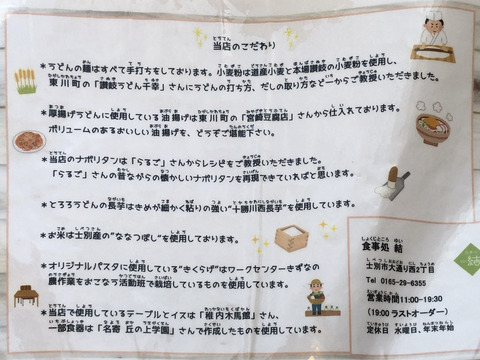 当店のこだわり
*うどんの麺はすべて手打ちをしております。小麦粉は道産小麦と本場讃岐の小麦粉を使用し、
東川町の「讃岐うどん千幸」さんにうどんの打ち方、だしの取り方など一からご教授いただきました。
*厚揚げうどんに使用している油揚げは東川町の「宮崎豆腐店」さんから仕入れております。
ボリュームのあるおいしい油揚げを、どうぞご堪能下さい。
*当店のナポリタンは「らるご」さんからレシピをご教授いただきました。
「らるご」さんの昔ながらの懐かしいナポリタンを再現できていればと思います。
*とろろうどんの長芋はきめが細かく粘りの強い"十勝川西長芋"を使用しています。
*お米は士別産の"ななつぼし"を使用しております。
*オリジナルパスタに使用している"きくらげ"はワークセンターきずなの
農作業をおこなう活動班で栽培しているものを使用しています。
*当店で使用しているテーブルとイスは「稚内木馬館」さん、
一部食器は「名寄 丘の上学園」さんで作成したものを使用しています。
結
食事処 結
士別市大通り西2丁目
Tel 0165-29-6355
営業時間11:00-19:30
(19:00 ラストオーダー)
定休日 水曜日、年末年始